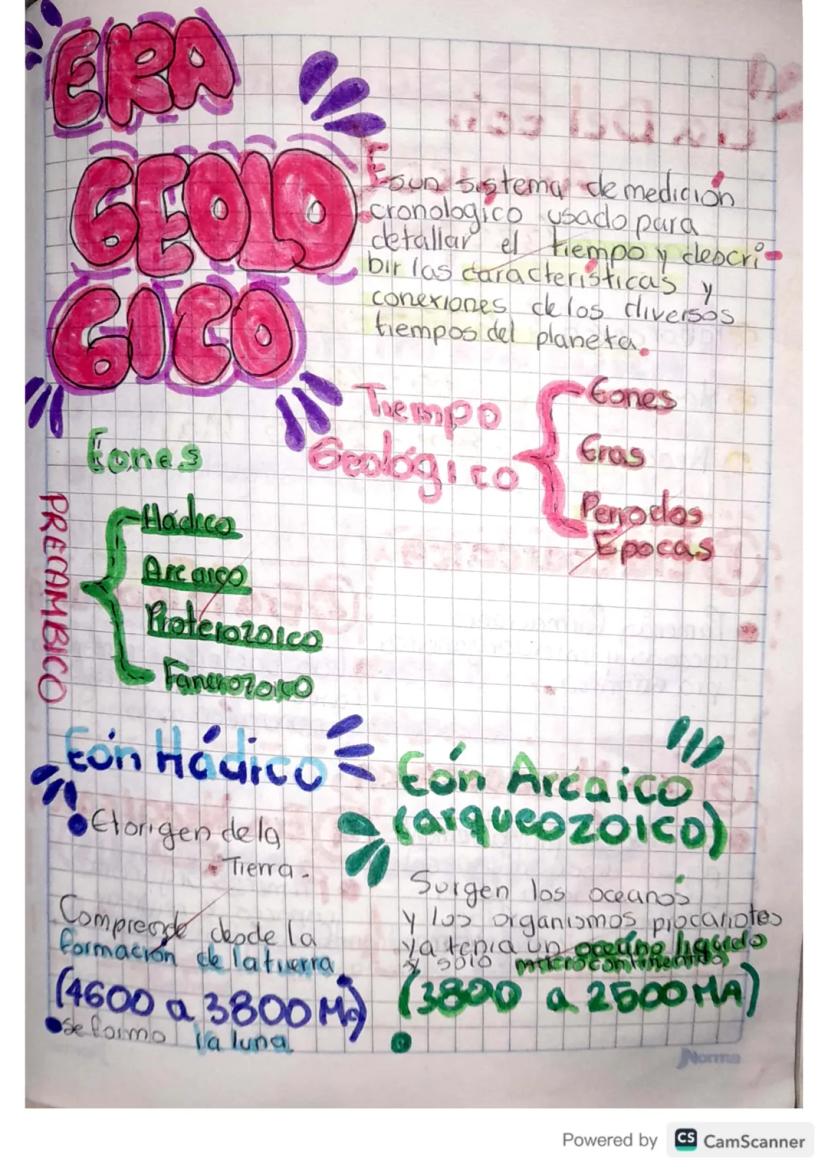 ERA
GEOLO
GICO
Es un sistema de medición
cronologico usado para
detallar el tiempo y descri-
bir las características y
conexiones de los diversos
tiempos del planeta.
Tiempo
Geológico
Eones
Eras
Periodos
Epocas
Eones
PRECAMBICO
Hádico
Arcaico
Proterozoico
Fanerozoico
Eón Hádico
El origen de la
Tierra.
Comprende desde la
formación de la tierra
(4600 a 3800 Ma)
se formo la luna
Eón Arcaico
(arqueozoico)
Surgen los oceanos
y los organismos procariotes
ya tenia un oceano liquido
y solo microcontinentes
(3800 a 2500 MA)
Norma
Powered by CS CamScanner